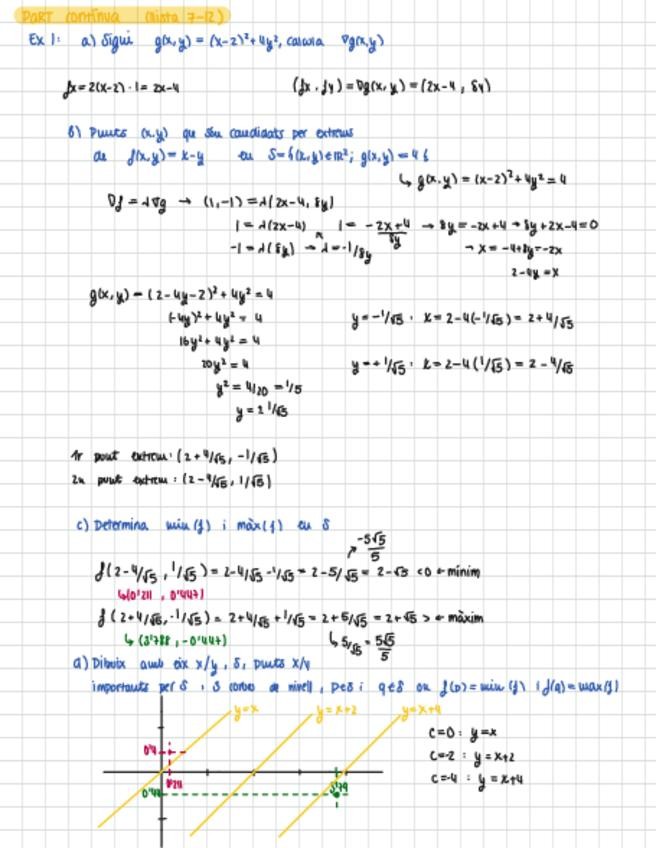 PART contínua (llista 7-12)
Ex 1: a) Sigui g(x,y) = (x-2)² + 4y², calcula ∇g(x,y)
fx = 2(x-2) · 1 = 2x-4 (fx, fy) = ∇g(x,y) = (2x-4, 8y)
b) Punts (x,y) que són candidats per extrems
de f(x,y) = x-y en S={(x,y)∈ℝ²; g(x,y)=4}
↳ g(x,y) = (x-2)² + 4y² = 4
∇f = λ∇g → (1,-1) = λ(2x-4, 8y)
1 = λ(2x-4) 1 = -2x+4/8y → 8y = -2x+4 → 8y+2x-4=0
-1 = λ(8y) → λ = -1/8y → x = -4+8y = -2x
2-4y = x
g(x,y) = (2-4y-2)² + 4y² = 4
(-4y)² + 4y² = 4 y = -1/√5 : x = 2-4(-1/√5) = 2+4/√5
16y² + 4y² = 4
20y² = 4 y = +1/√5 : x = 2-4(1/√5) = 2-4/√5
y² = 4/20 = 1/5
y = ± 1/√5
1r punt extrem: (2+4/√5, -1/√5)
2n punt extrem: (2-4/√5, 1/√5)
c) Determina min(f) i màx(f) en S
-5√5/5
f(2-4/√5, 1/√5) = 2-4/√5-1/√5 = 2-5/√5 = 2-√5 <0 ← mínim
↳(0'211, 0'447)
f(2+4/√5, -1/√5) = 2+4/√5+1/√5 = 2+5/√5 = 2+√5 > ← màxim
↳(3'788, -0'447) ↳ 5/√5 = 5√5/5
d) Dibuix amb eix x/y, S, punts x/y
importants per S, 3 corbes de nivell, p∈S i q∈S on f(p)=min(f) i f(q)=max(f)
y=x y=x+2 y=x+4
c=0 : y=x
0'4 c=-2 : y=x+2
0'211 3'79 c=-4 : y=x+4
0'44